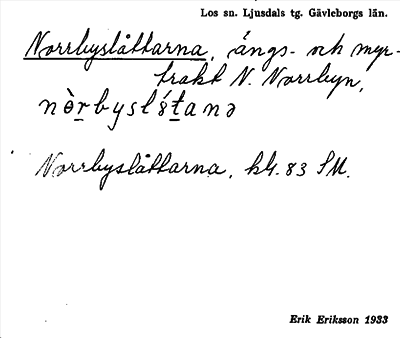 Los sn. Ljusdals tg. Gävleborgs län.
Norrbyslåttarna, ängs- och myr-
trakt N. Norrbyn,
nòrbyslɷ́tanə
Norrbyslåttarna, hk. 83 SM.
Erik Eriksson 1933